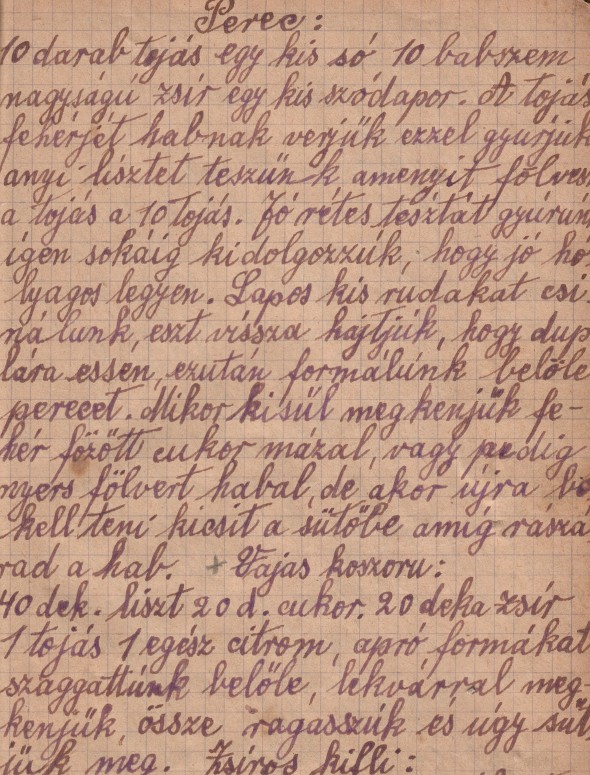 Perec:
10 darab tojás egy kis só 10 babszem
nagyságú zsír egy kis szódapor. A tojás
fehérjét habnak verjük ezzel gyurjuk
anyi lisztet teszünk amenyit fölvesz
a tojás a 10 tojás. Jó rétes tésztát gyúrún
igen sokáig kidolgozzúk, hogy jó hó
lyagos legyen. Lapos kis rudakat csi
nálunk, eszt vissza hajtjúk, hogy dup
lára essen, ezután formálúnk belőle
perecet. Mikor kisül megkenjük fe-
hér főzött cukor mázal, vagy pedig
nyers fölvert habal, de akor újra be
kell teni kicsit a sütőbe amíg rászá
rad a hab. + Vajas koszoru:
40 dek. liszt 20 d. cukor. 20 deka zsír
1 tojás 1 egész citrom, apró formákat
szaggattúnk belőle, lekvárral meg-
kenjük, össze ragasszúk és úgy süt
jük meg. Zsíros kifli: